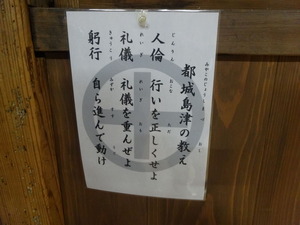 都城島津の教え
人倫 行いを正しくせよ
礼儀 礼儀を重んぜよ
躬行 自ら進んで動け